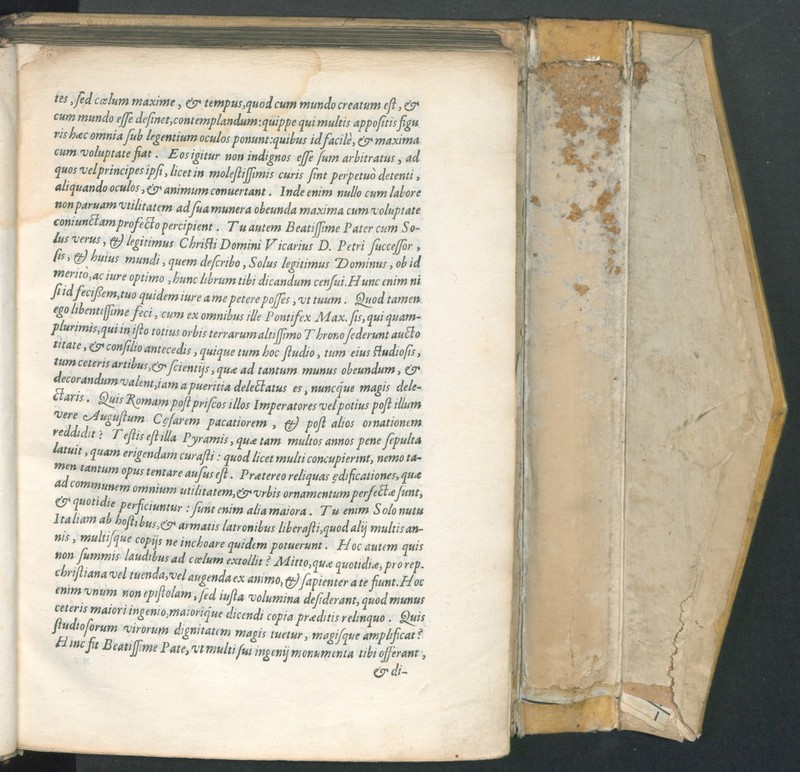 tes, sed cœlum maxime, & tempus, quod cum mundo creatum est, &
cum mundo esse desinet, contemplandum: quippe qui multis appositis figu
ris hæc omnia sub legentium oculos ponunt: quibus id facilè, & maxima
cum voluptate fiat. Eos igitur non indignos esse sum arbitratus, ad
quos vel principes ipsi, licet in molestissimis curis sint perpetuò detenti,
aliquando oculos, & animum conuertant. Inde enim nullo cum labore
non paruam vtilitatem ad sua munera obeunda maxima cum voluptate
coniunctam profecto percipient. Tu autem Beatissime Pater cum So-
lus verus, & legitimus Christi Domini Vicarius D. Petri successor,
sis, & huius mundi, quem describo, Solus legitimus Dominus, ob id
meritò, ac iure optimo, hunc librum tibi dicandum censui. Hunc enim ni
si id fecißem, tuo quidem iure a me petere posses, vt tuum. Quod tamen
ego libentissime feci, cum ex omnibus ille Pontifex Max. sis, qui quam-
plurimis, qui in isto totius orbis terrarum altissimo Throno sederunt aucto
titate, & consilio antecedis, quique tum hoc studio, tum eius studiosis,
tum ceteris artibus, & scientijs, quæ ad tantum munus obeundum, &
decorandum valent, iam a pueritia delectatus es, nuncq́ue magis dele-
ctaris. Quis Romam post priscos illos Imperatores vel potius post illum
vere Augustum Cęsarem pacatiorem, & post alios ornationem
reddidit? Testis est illa Pyramis, quæ tam multos annos pene sepulta
latuit, quam erigendam curasti: quod licet multi concupierint, nemo ta-
men tantum opus tentare ausus est. Prætereo reliquas ędificationes, quæ
ad communem omnium utilitatem, & vrbis ornamentum perfectæ sunt,
& quotidie perficiuntur: sunt enim alia maiora. Tu enim Solo nutu
Italiam ab hostibus, & armatis latronibus liberasti, quod alij multis an-
nis, multisque copijs ne inchoare quidem potuerunt. Hoc autem quis
non summis laudibus ad cœlum extollit? Mitto, quæ quotidiæ, pro rep.
christiana vel tuenda, vel augenda ex animo, & sapienter a te fiunt. Hoc
enim vnum non epistolam, sed iusta volumina desiderant, quod munus
ceteris maiori ingenio, maiorique dicendi copia præditis relinquo. Quis
studiosorum virorum dignitatem magis tuetur, magisque amplificat?
Hinc fit Beatissime Pate, vt multi sui ingenij monumenta tibi offerant,
& di-